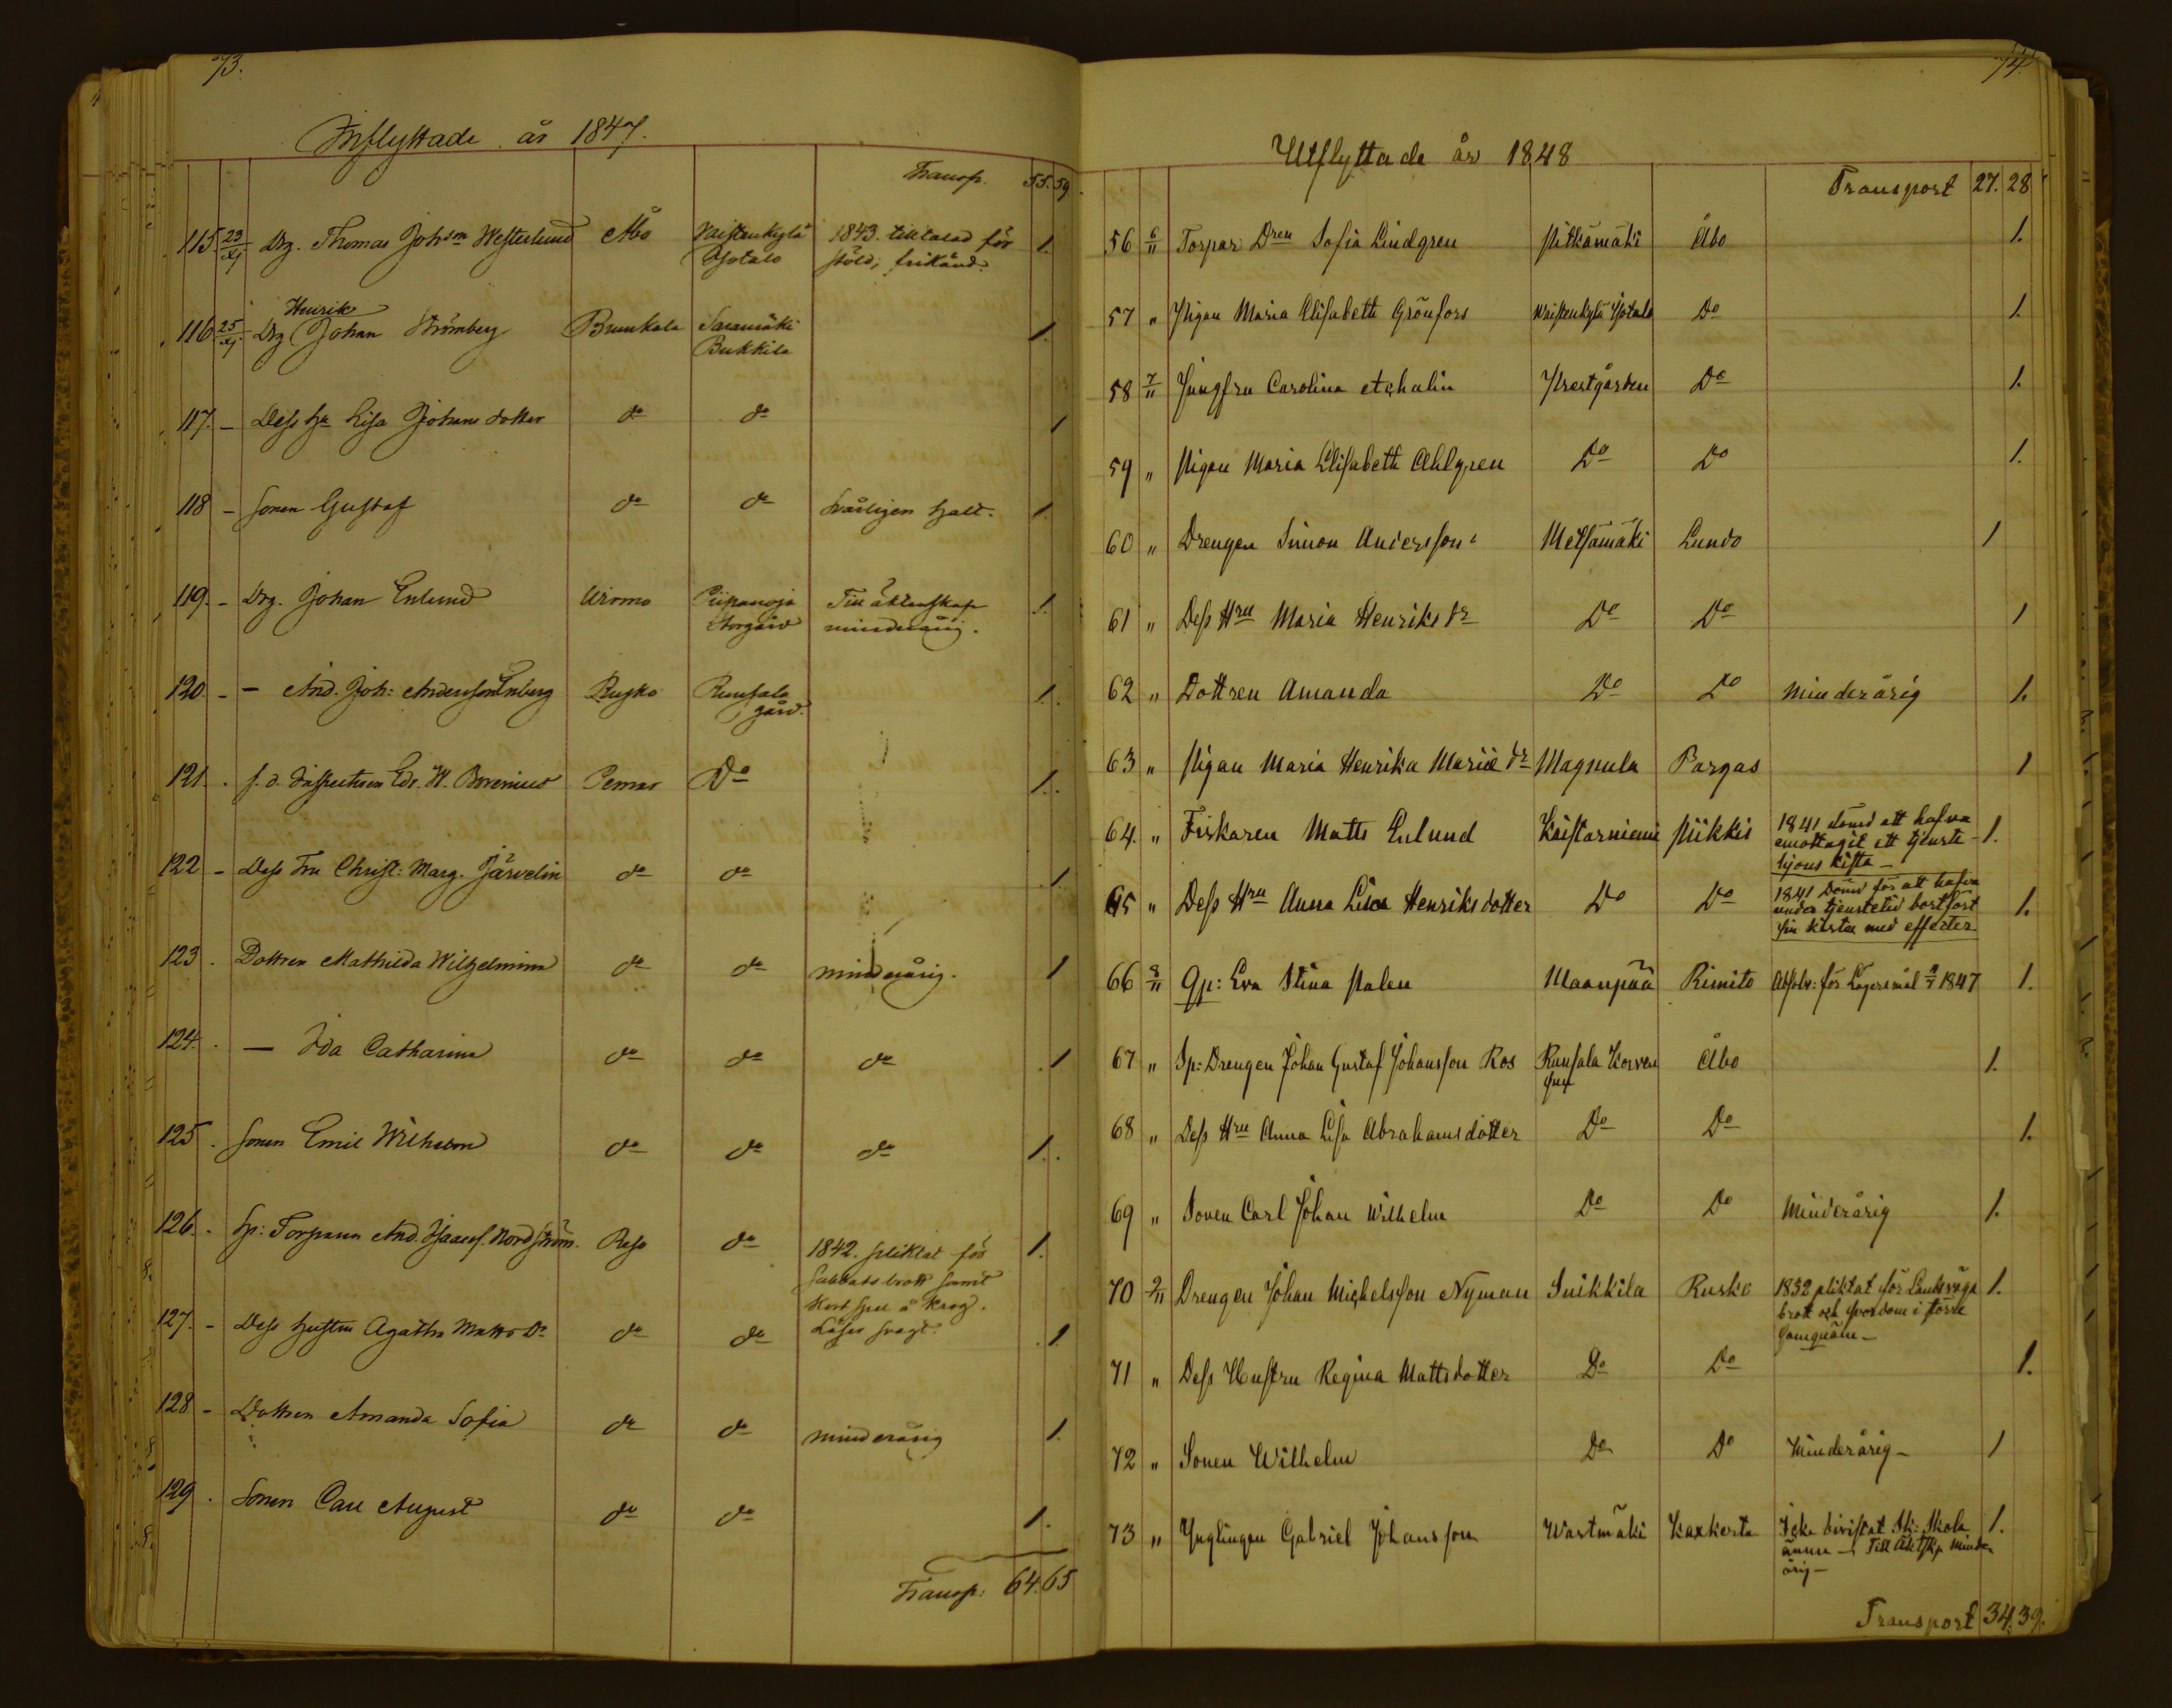 73.
Inflyttade år 1847.
Transp. 55. 59.
115. 23/XI Drg. Thomas Johsn Westerlund Åbo Kaistenkylä 1843. tilltalad för 1.
Ysotalo stöld; frikänd.
Henrik
116. 25/XI Drg Johan Strömberg Brunkala Saramäki 1.
Bukkila
117. - Dess hu Lisa Johansdotter do do 1
118 - Sonen Gustaf do do Svårligen halt. 1.
119. - Drg. Johan Enlund Wirmo Piipanoja Till äktenskap 1.
Storgård minderårig.
120. - - And. Joh: Andersson Enberg Rusko Runsala 1.
gård.
121. . f. d. Inspectoren Edv. W. Borenius Pemar Do 1.
122 - Dess Fru Christ: Marg. Järvelin do do 1
123 . Dottren Mathilda Wilhelmina do do minderårig. 1
124. . — Ida Catharina do do do 1
125. . Sonen Emil Wilhelm do do do 1.
126. . Sp: Torparen And. Isaacss. Nordström. Reso do 1842. pliktat för 1.
Sabbatsbrott samt
Kortspel å krog.
127. - Dess hustru Agatha Matts Dr do do Läser svagt. 1
128 - Dottren Amanda Sofia do do minderårig 1.
129 . Sonen Carl August do do 1.
Transp: 64. 65
74.
Utflyttade år 1848
Transport 27. 28
56 6/11 Torpar Dren Sofia Lindgren Pitkämäki Åbo 1.
57 " Pigan Maria Elisabeth Grönfors Kaistenkylä Ysotalo Do 1.
58 7/11 Jungfru Carolina Achalin Prestgården Do 1.
59 " Pigan Maria Elisabeth Ahlgren Do Do 1.
60 " Drengen Simon Andersson Metsämäki Lundo 1
61 " Dess Hru Maria Henriks dr Do Do 1
62 " Dottren Amanda Do Do Minderårig 1.
63 " Pigan Maria Henrika Mariæ dr Magnula Pargas 1
64. " Fiskaren Matts Enlund Kaistarniemi Piikkis 1841 dömd att hafva 1.
emottagit ett tjenste
hjons kista —
65 " Dess Hru Anna Lisa Henriksdotter Do Do 1841 Dömd för att hafva 1.
under tjenstetid bortfört
sin kista med effecter
66 8/11 Qp: Eva Stina Palen Maanpää Rimito Absolv: för Lägersmål 1847 1.
67 " Sp: Drengen Johan Gustaf Johansson Ros Runsala Korven Åbo 1.
68 " Dess Hru Anna Lisa Abrahamsdotter Do Do 1.
69 " Sonen Carl Johan Wilhelm Do Do Minderårig 1.
70 9/11 Drengen Johan Michelsson Nyman Suikkila Rusko 1832 pliktat för Landsvägs 1.
brott och svordom i större
samqväm —
71 " Dess Hustru Regina Mattsdotter Do Do 1.
72 " Sonen Wilhelm Do Do Minderårig — 1
73 " Ynglingen Gabriel Johansson Wartmäki Kaxkerta Icke bivistat Sk: Skola 1.
ännu — Till Äktskp Minder
årig —
Transport 34. 39.